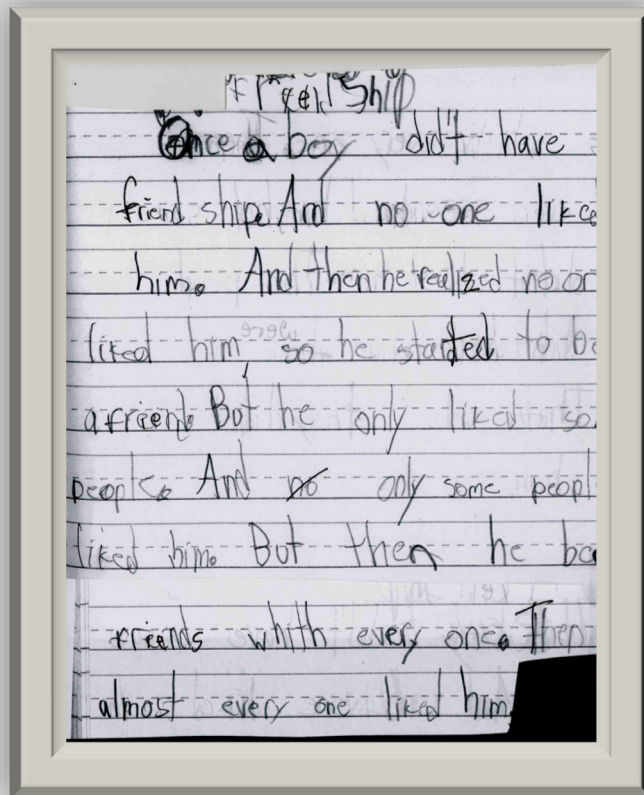 Once a boy didn't have
friend shipe. And no one like
him. And then he realized no or
liked him so he started to be
a friend. But he only liked so
people. And no only some peopl
liked him. But then he be
friends whith every one. Then
almost every one liked him